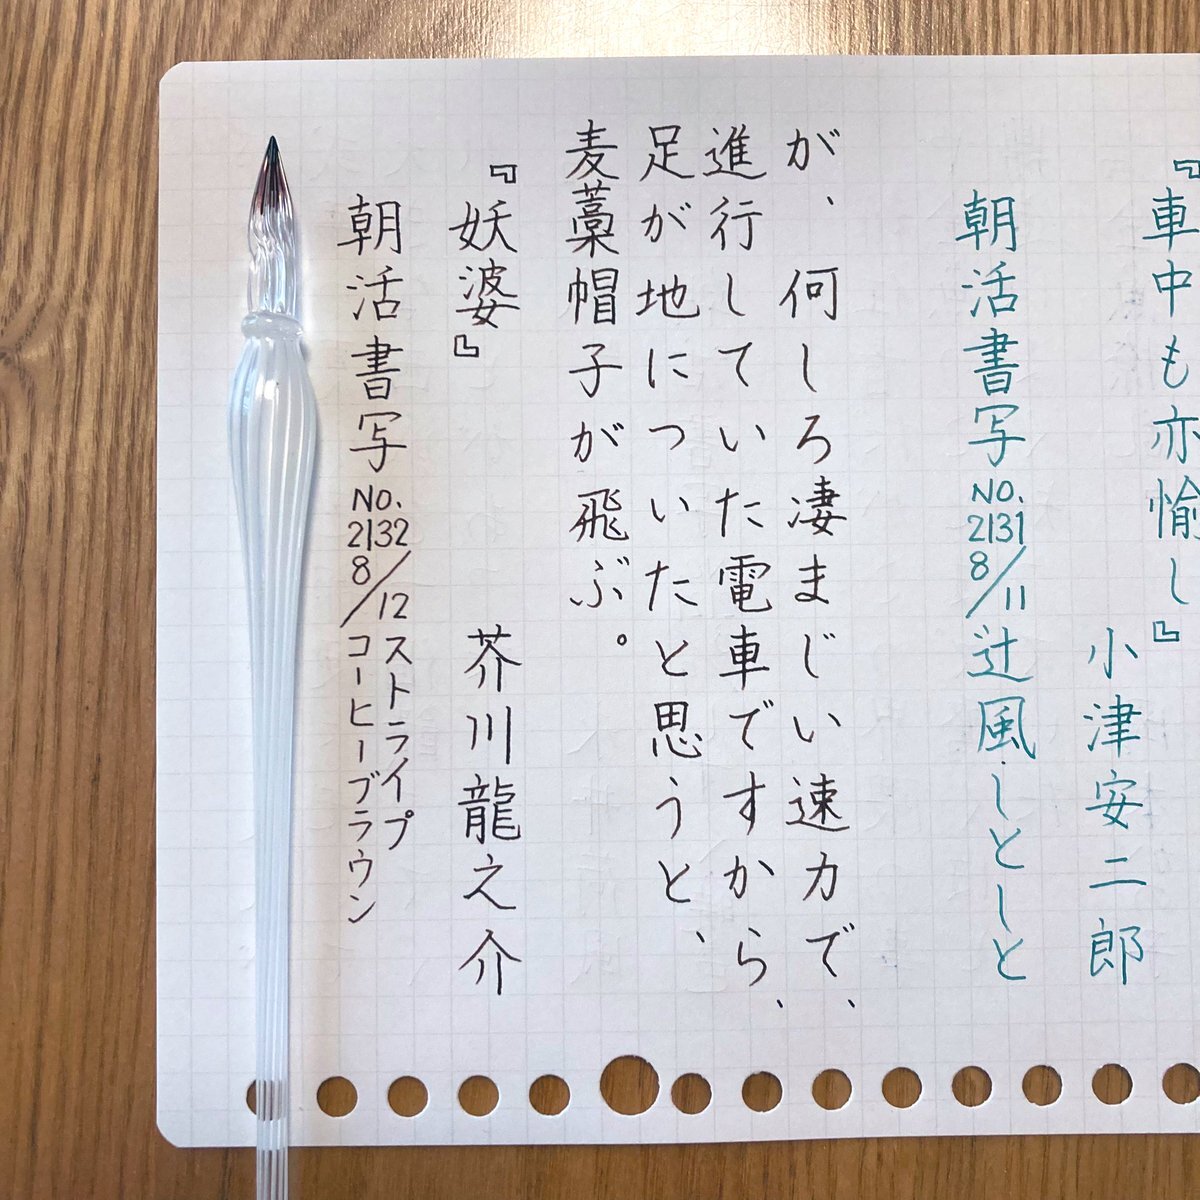 『車中も亦愉し』
小津安二郎
朝活書写 NO.2131 8/11 辻風・しとしと
が、何しろ凄まじい速力で、
進行していた電車ですから、
足が地についたと思うと、
麦藁帽子が飛ぶ。
『妖婆』 芥川龍之介
朝活書写 NO.2132 8/12 ストライプ
コーヒーブラウン